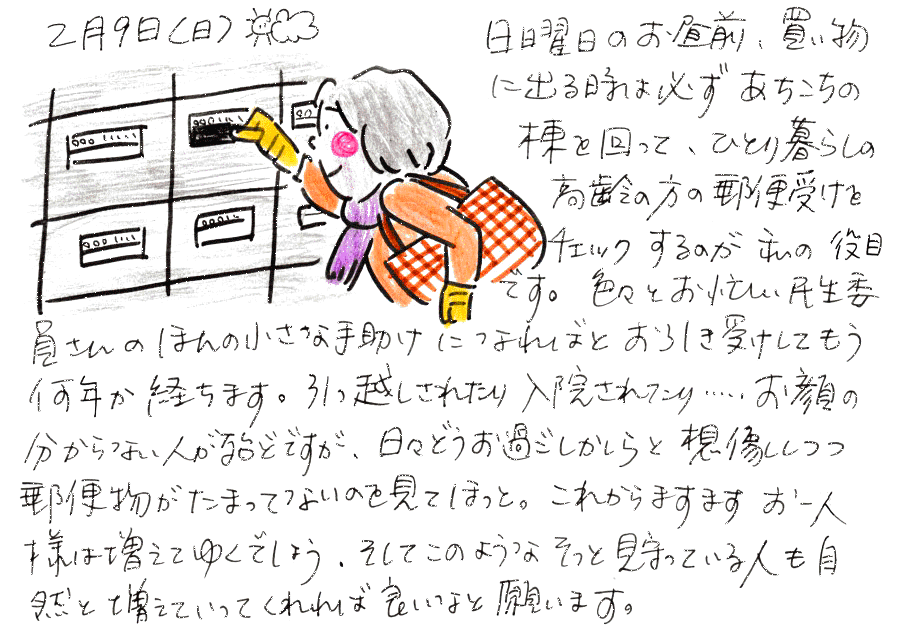 2月9日(日)
日日曜日のお昼前、買い物
に出る時は必ずあちこちの
棟を回って、ひとり暮らしの
高齢の方の郵便受けを
チェックするのが私の役目
です。色々とお忙しい民生委
員さんのほんの小さな手助けになればとお引き受けしてもう
何年か経ちます。引っ越しされたり入院されてたり……お顔の
分からない人が殆どですが、日々どうお過ごしかしらと想像しつつ
郵便物がたまってないのを見てほっと。これからますますお一人
様は増えてゆくでしょう、そしてこのようなそっと見守っている人も自
然と増えていってくれれば良いなと願います。